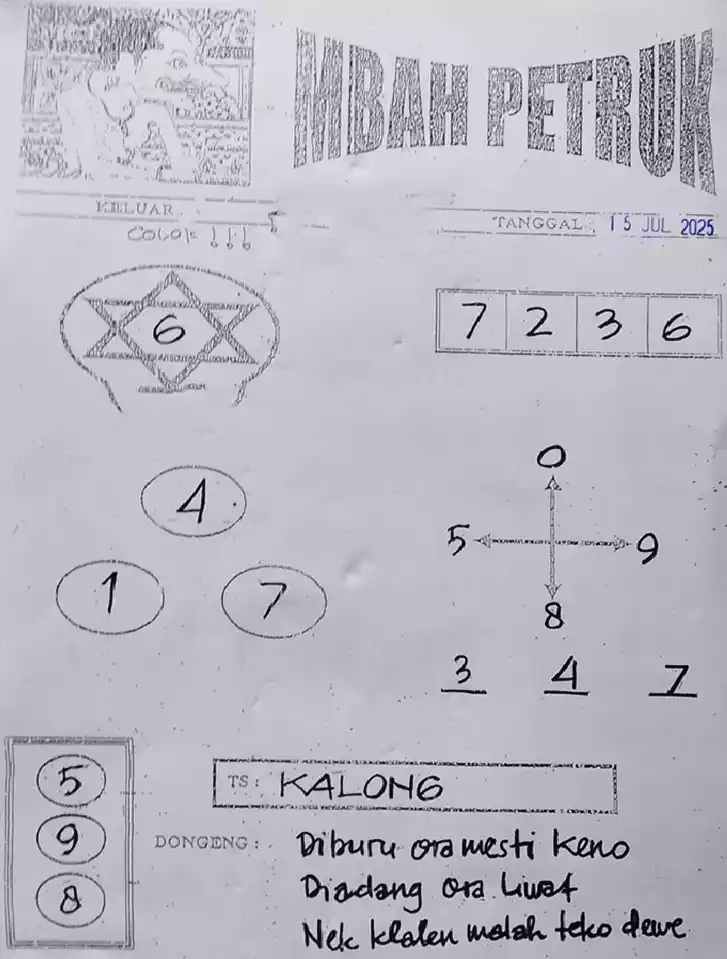 MBAH PETRUK
KELUAR
COLOK !!!
TANGGAL : 15 JUL 2025
6
7 2 3 6
4
1 7
0
5 9
8
3 4 7
5
9
8
TS : KALONG
DONGENG : Diburu ora mesti keno
Diadang ora liwat
Nek klalen malah teko dewe